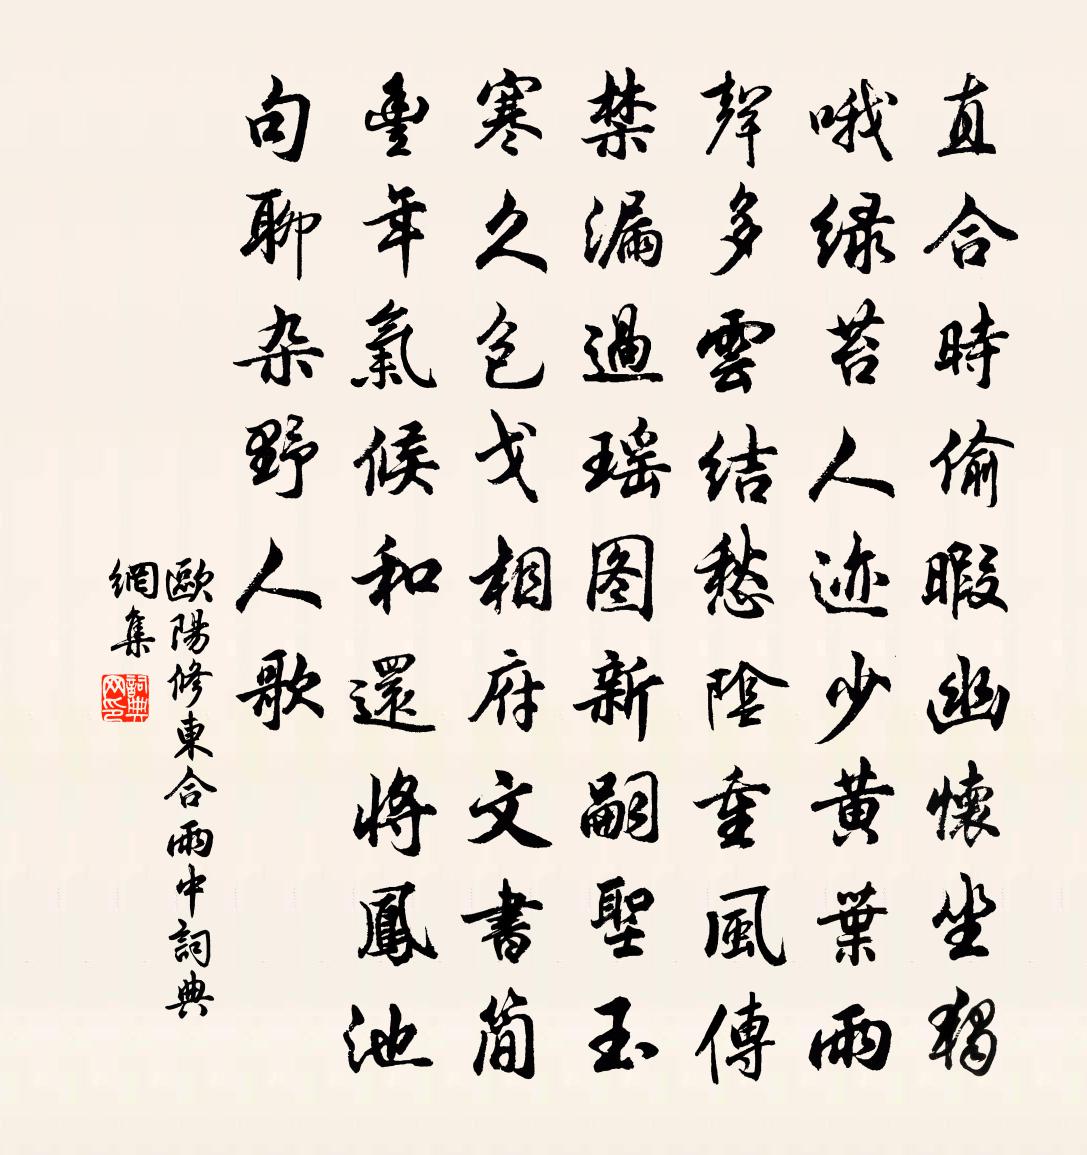 直合時偷暇幽懷坐獨
哦绿苔人迹少黄葉雨
聲多雲结愁陰重風傳
禁漏過瑶图新嗣聖玉
寒久包戈相府文書简
豊年氣候和還將鳳池
句聊杂野人歌
歐陽修東合雨中詞典
網集
詞典
网印